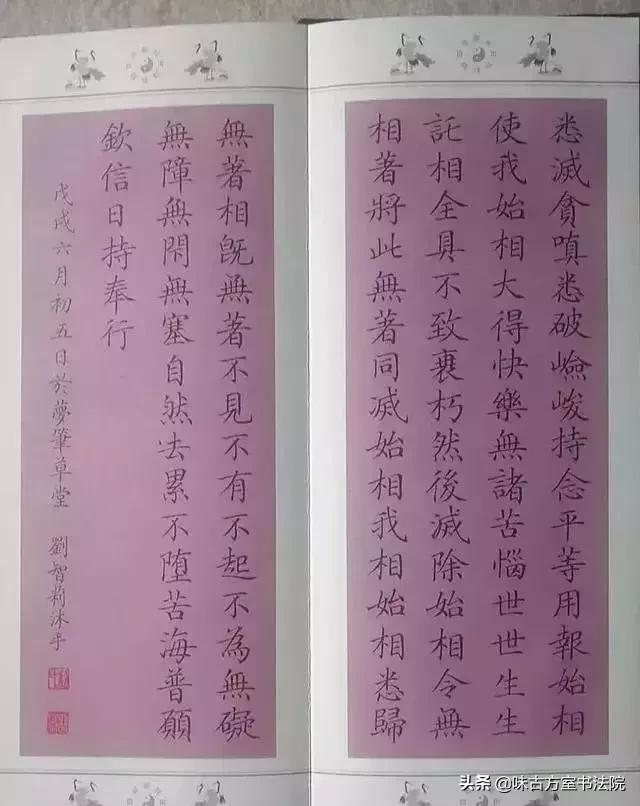 悉滅貪嗔悉破嶮峻持念平等用報始相
使我始相大得快樂無諸苦惱世世生生
託相全具不致衰朽然後滅除始相令無
相著將此無著同滅始相我相始相悉歸
無著相旣無著不見不有不起不為無礙
無障無閑無塞自然去累不墮苦海普願
欽信日持奉行
戊戌六月初五日於夢筆草堂 劉智莉沐手
头条 @味古方室书法院